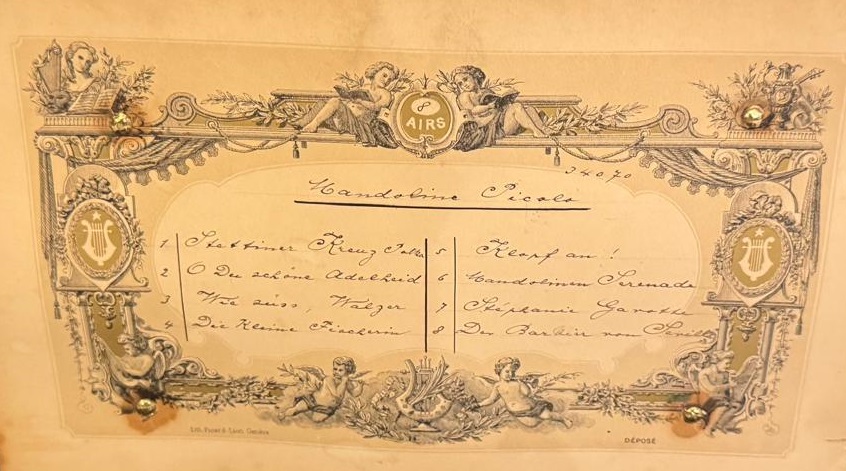 8
AIRS
34070
Mandoline Picolo
1 Stettiner Kreuz Polka
2 O Du schöne Adelheid
3 Wie süss, Walzer
4 Die Kleine Fischerin
5 Klopf an!
6 Mandolinen Serenade
7 Stéphanie Gavotte
8 Der Barbier von Sevilla
Lith. Genève
DÉPOSÉ